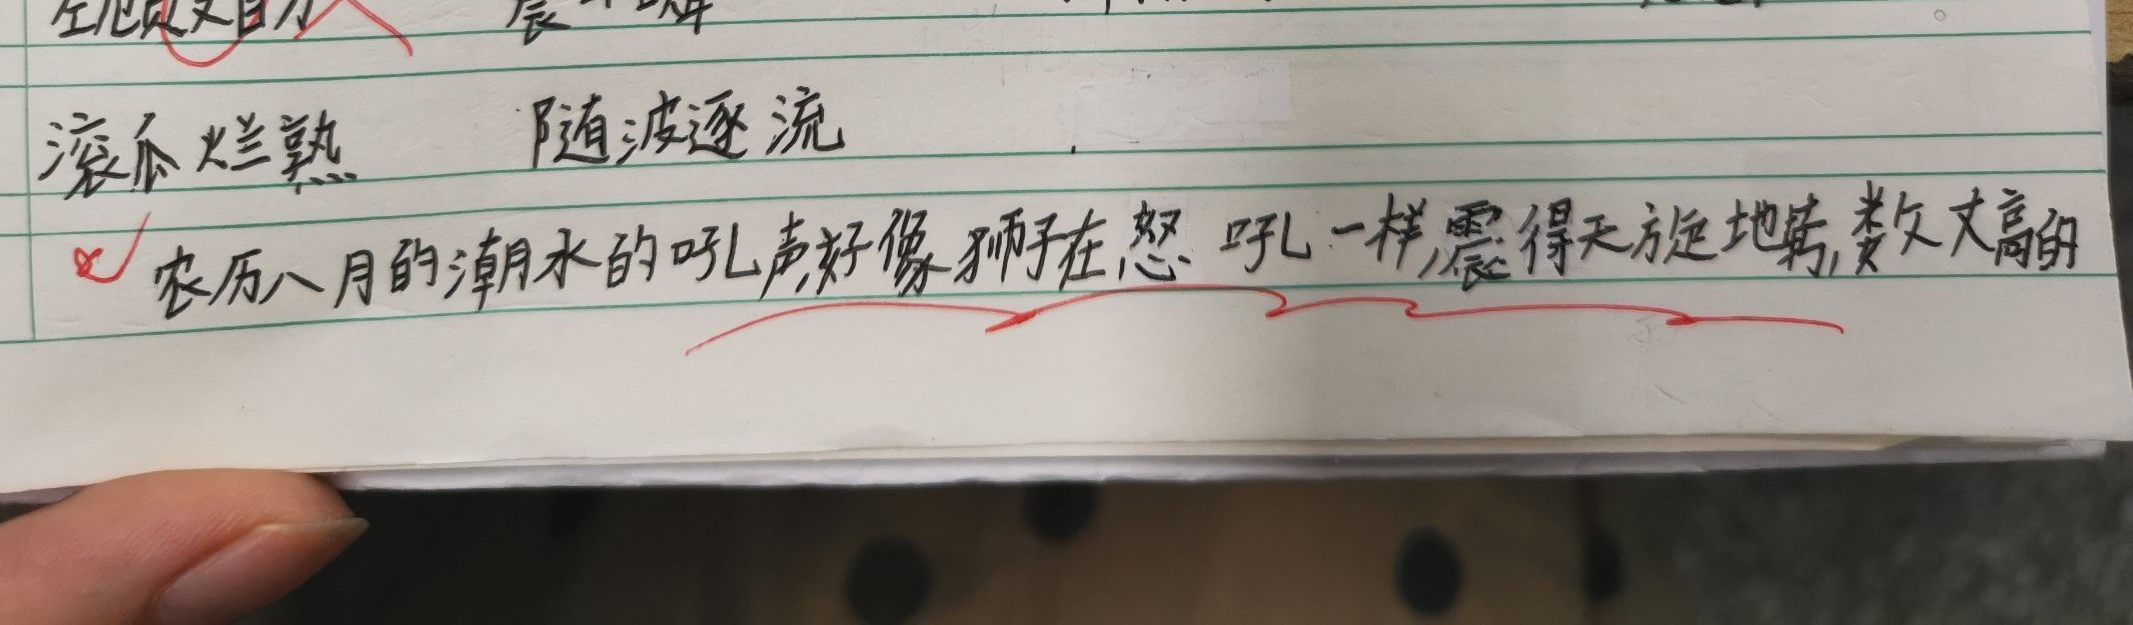 滚瓜烂熟 随波逐流
农历八月的潮水的吼声好像狮子在怒吼一样,震得天旋地转,数丈高的